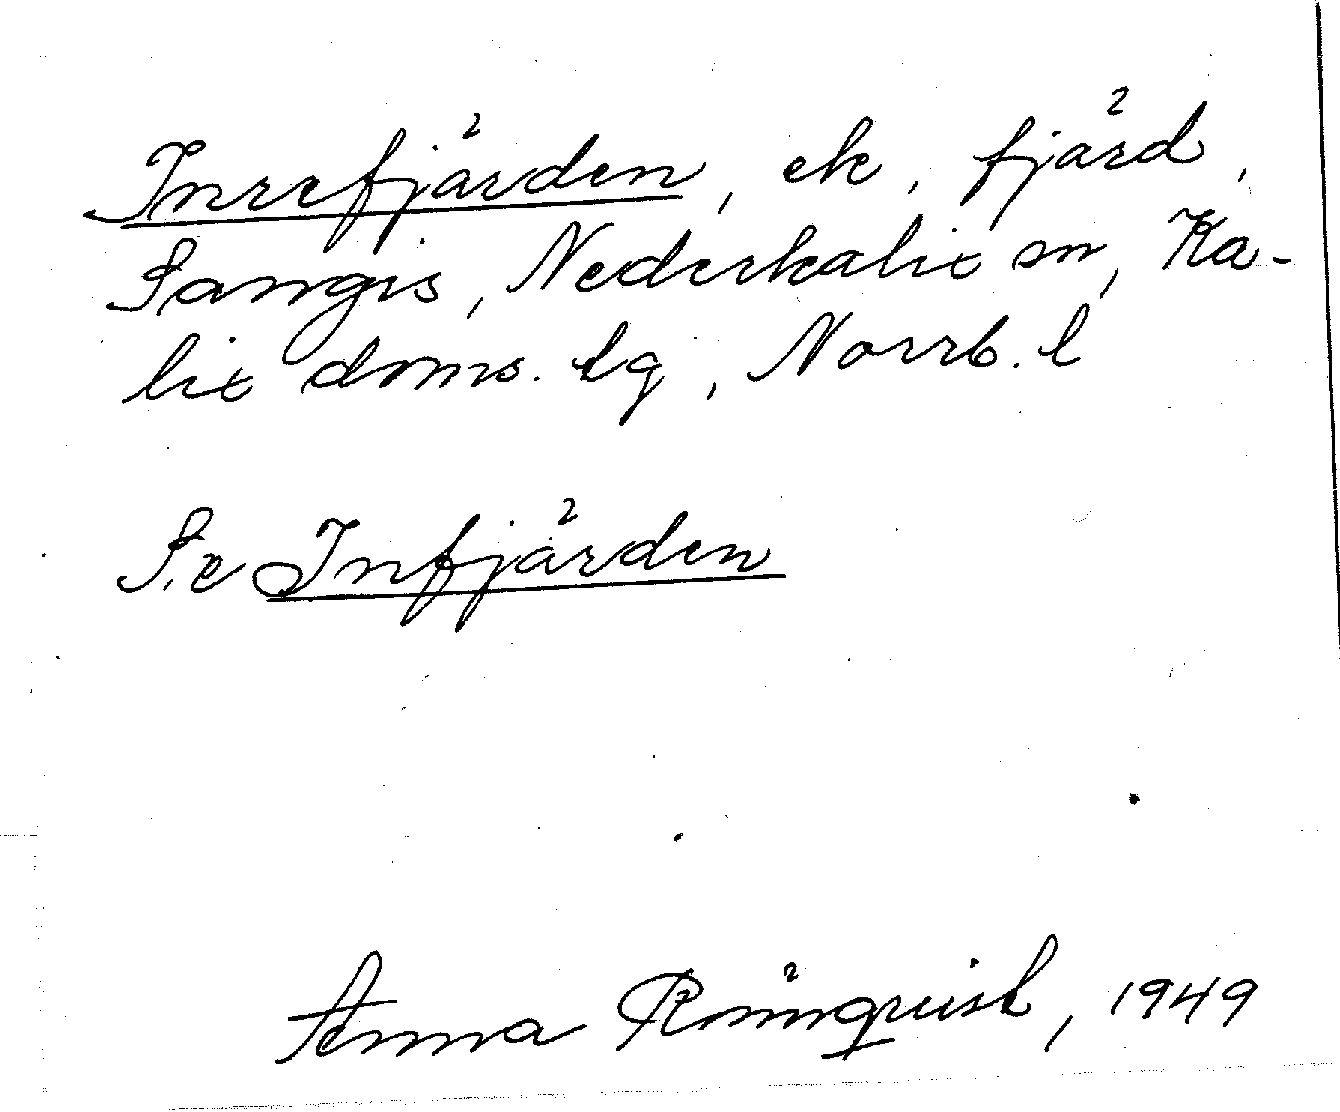 Inrefjärden, ek, fjärd,
Sangis, Nederkalix sn, Ka-
lix doms. lg, Norrb. l
Se Infjärden
Anna Rönnqvist, 1949